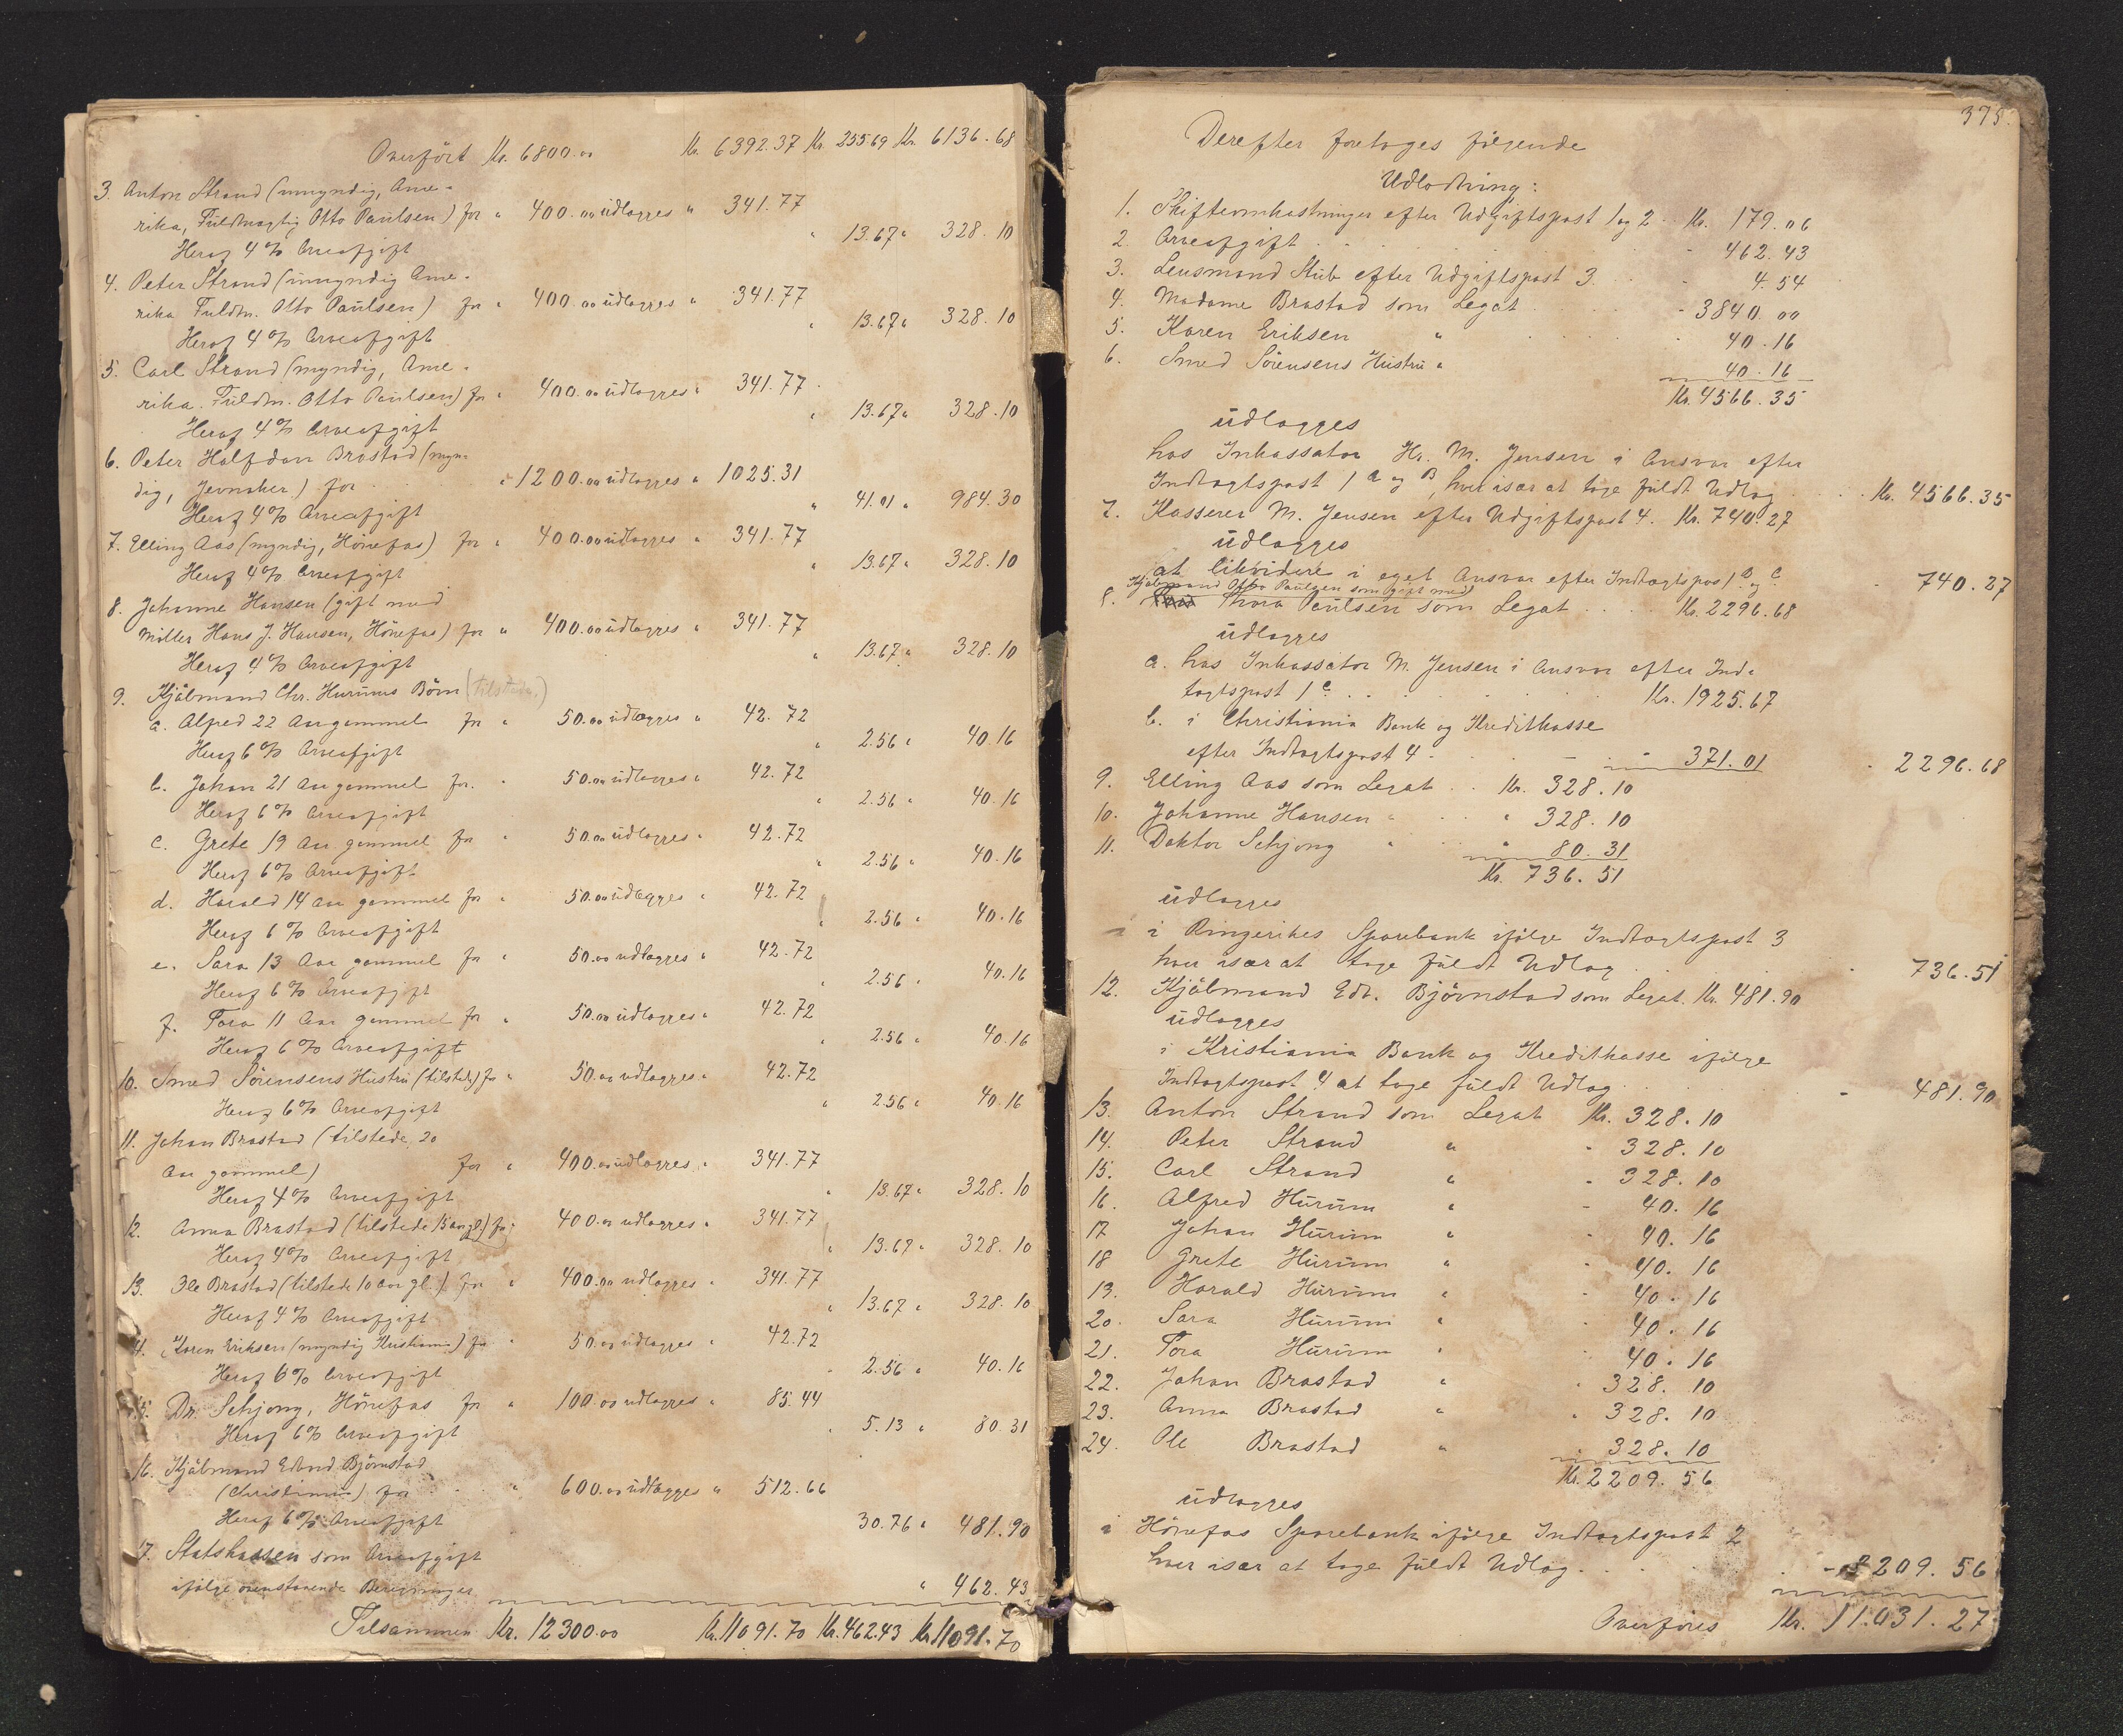 Overført Kr. 6800.00 Kr. 6392.37 Kr. 255.69 Kr. 6136.68
3. Anton Strand (umyndig, Ame-
rika, Fuldmægtig Otto Paulsen) for " 400.00 udlægges " 341.77
Heraf 4% Arveafgift " 13.67 " 328.10
4. Peter Strand (umyndig Ame-
rika Fuldm. Otto Paulsen) for " 400.00 udlægges " 341.77
Heraf 4% Arveafgift " 13.67 " 328.10
5. Carl Strand (myndig, Ame-
rika. Fuldm. Otto Paulsen) for " 400.00 udlægges " 341.77
Heraf 4% Arveafgift " 13.67 " 328.10
6. Peter Halfdan Brastad (myn-
dig, Jevnaker) for " 1200.00 udlægges " 1025.31
Heraf 4% Arveafgift " 41.01 " 984.30
7. Elling Aas (myndig, Hønefos) for " 400.00 udlægges " 341.77
Heraf 4% Arveafgift " 13.67 " 328.10
8. Johanne Hansen (gift med
Møller Hans J. Hansen, Hønefos) for " 400.00 udlægges " 341.77
Heraf 4% Arveafgift " 13.67 " 328.10
9. Kjøbmand Chr. Hurums Børn (tilstede.)
a. Alfred 22 Aar gammel for " 50.00 udlægges " 42.72
Heraf 6% Arveafgift " 2.56 " 40.16
b. Johan 21 Aar gammel for " 50.00 udlægges " 42.72
Heraf 6% Arveafgift " 2.56 " 40.16
c. Grete 19 Aar gammel for " 50.00 udlægges " 42.72
Heraf 6% Arveafgift " 2.56 " 40.16
d. Harald 14 Aar gammel for " 50.00 udlægges " 42.72
Heraf 6% Arveafgift " 2.56 " 40.16
e. Sara 13 Aar gammel for " 50.00 udlægges " 42.72
Heraf 6% Arveafgift " 2.56 " 40.16
f. Tora 11 Aar gammel for " 50.00 udlægges " 42.72
Heraf 6% Arveafgift " 2.56 " 40.16
10. Smed Sørensens Hustru (tilstede) for " 50.00 udlægges " 42.72
Heraf 6% Arveafgift " 2.56 " 40.16
11. Johan Brastad (tilstede, 20
Aar gammel) for " 400.00 udlægges " 341.77
Heraf 4% Arveafgift " 13.67 " 328.10
12. Anna Brastad (tilstede 15 Aar gl.) for " 400.00 udlægges " 341.77
Heraf 4% Arveafgift " 13.67 " 328.10
13. Ole Brastad (tilstede 10 Aar gl.) for " 400.00 udlægges " 341.77
Heraf 4% Arveafgift " 13.67 " 328.10
14. Karen Eriksen (myndig Kristiania) for " 50.00 udlægges " 42.72
Heraf 6% Arveafgift " 2.56 " 40.16
15. Dr. Schjong, Hønefos for " 100.00 udlægges " 85.44
Heraf 6% Arveafgift " 5.13 " 80.31
16. Kjøbmand Edvard Bjørnstad
(Christiania) for " 600.00 udlægges " 512.66
Heraf 6% Arveafgift 30.76 " 481.90
17. Statskassen som Arveafgift
ifølge ovenstaaende Beregninger " 462.43
Tilsammen Kr. 12300.00 Kr. 11091.70 Kr. 462.43 Kr. 11091.70
375.
Derefter foretoges følgende
Udlodning:
1. Skifteomkostninger efter Udgiftspost 1 og 2 Kr. 179.06
2. Arveafgift - 462.43
3. Lensmand Stub efter Udgiftspost 3 - 4.54
4. Madame Brastad som Legat - 3840.00
5. Karen Eriksen " - 40.16
6. Smed Sørensens Hustru " 40.16
Kr. 4566.35
udlægges
hos Inkassator Hr. M. Jensen i Ansvar efter
Indtægtspost 1 a og b, hver især at tage fuldt Udlæg Kr. 4566.35
7. Kasserer M. Jensen efter Udgiftspost 4. Kr. 740.27
udlægges
at likvidere i eget Ansvar efter Indtægtspost 1 b og c - 740.27
Kjøbmand Otto Paulsen som gift med
8. Thora Paulsen som Legat Kr. 2296.68
udlægges
a. hos Inkassator M. Jensen i Ansvar efter Ind-
tægtspost 1 c Kr. 1925.67
b. i Christiania Bank og Kreditkasse
efter Indtægtspost 4 - 371.01 - 2296.68
9. Elling Aas som Legat Kr. 328.10
10. Johanne Hansen " " 328.10
11. Doktor Schjong " " 80.31
Kr. 736.51
udlægges
i Ringerikes Sparebank ifølge Indtægtspost 3
hver især at tage fuldt Udlæg - 736.51
12. Kjøbmand Edv. Bjørnstad som Legat. Kr. 481.90
udlægges
i Kristiania Bank og Kreditkasse ifølge
Indtægtspost 4 at tage fuldt Udlæg - 481.90
13. Anton Strand som Legat Kr. 328.10
14. Peter Strand " - 328.10
15. Carl Strand " - 328.10
16. Alfred Hurum " - 40.16
17 Johan Hurum " - 40.16
18 Grete Hurum " - 40.16
19. Harald Hurum " - 40.16
20. Sara Hurum " - 40.16
21. Tora Hurum " - 40.16
22. Johan Brastad " - 328.10
23. Anna Brastad " - 328.10
24. Ole Brastad " - 328.10
Kr. 2209.56
udlægges
i Hønefos Sparebank ifølge Indtægtspost 2
hver især at tage fuldt Udlæg - 2209.56
Overføres Kr. 11.031.27